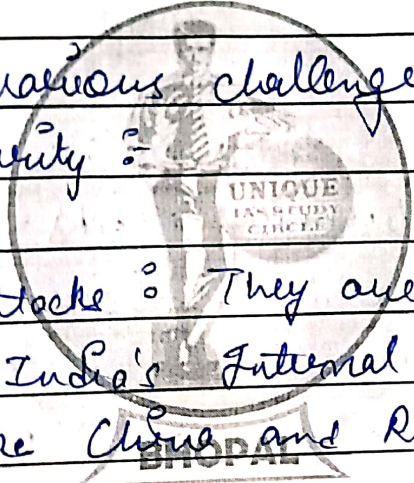 various challenge
urity :-
UNIQUE
IAS STUDY
CIRCLE
tacks : They are
India's Internal
re China and R
BHOPAL